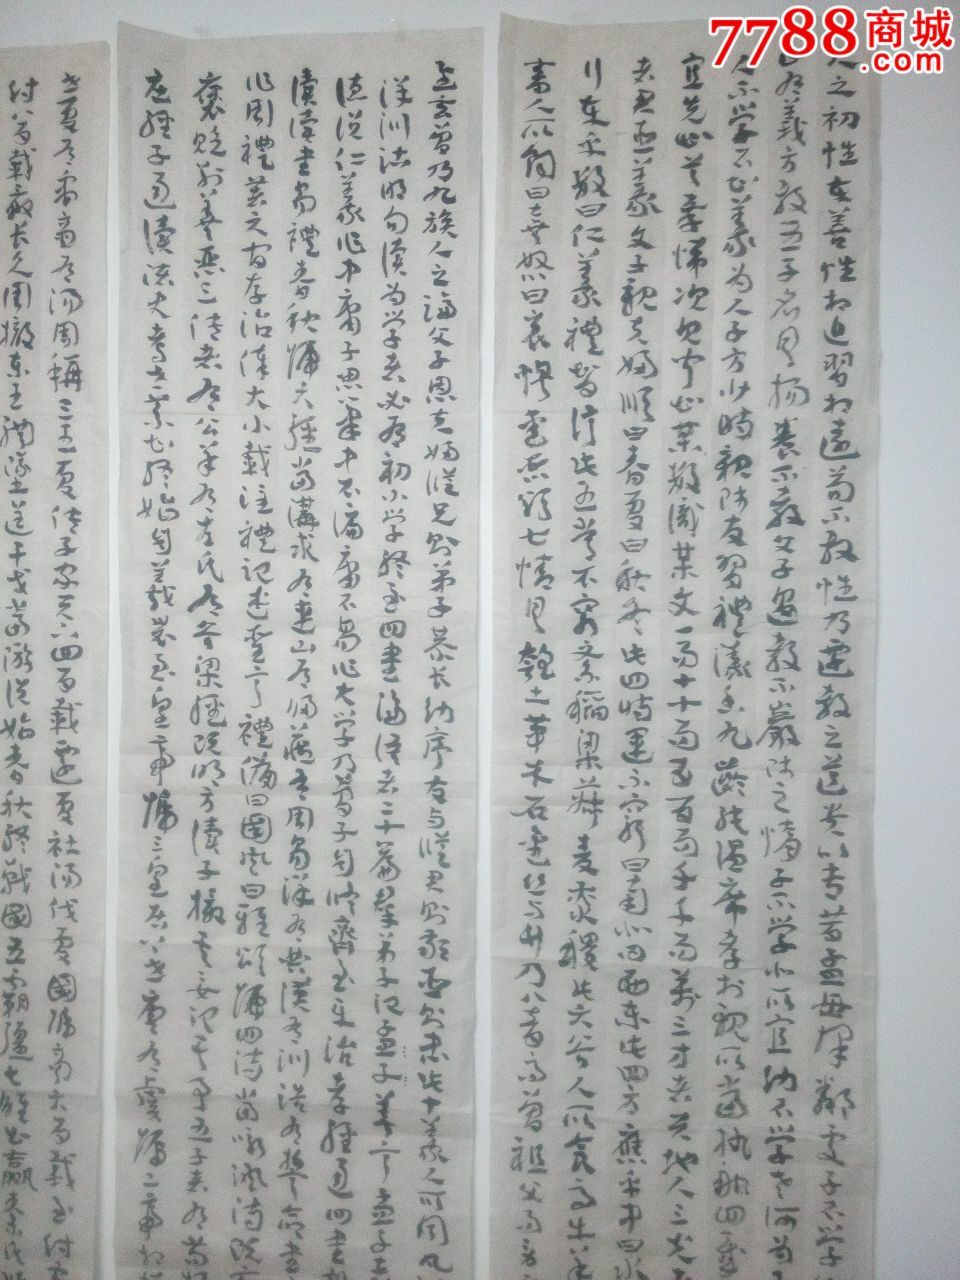 7788商城
.com
人之初性本善性相近習相遠苟不教性乃遷教之道貴以專昔孟母擇鄰處子不學
山有義方教五子名具揚養不教父子過教不嚴師之惰子不學非所宜幼不學老何為
人不學不知義為人子方少時親師友習禮儀香九齡能溫席孝於親所當執融四歲
宜先知首孝悌次見聞知某數識某文一而十十而百百而千千而萬三才者天地人三光者
者君臣義父子親夫婦順曰春夏曰秋冬此四時運不窮曰南北曰西東此四方應乎中曰水
行本乎數曰仁義禮智信此五常不容紊稻粱菽麥黍稷此六谷人所食馬牛羊
畜人所飼曰喜怒曰哀懼愛惡欲七情具匏土革木石金絲與竹乃八音高曾祖父而身
至玄曾乃九族人之論父子恩夫婦從兄則弟子恭長幼序友與從君則敬臣則忠此十義人所同凡
詳訓詁明句讀為學者必有初小學終至四書論語者二十篇群弟子記孟子善言孟子
德說仁義作中庸子思筆中不偏庸不易作大學乃曾子自修齊至平治孝經通四書
讀讀書易禮春秋號六經當講求有連山有歸藏有周易詳有典謨有訓誥有誓命書
作周禮著六官存治體大小戴注禮記述聖言禮備曰國風曰雅頌號四詩當咏諷詩既亡
褒貶別善惡三傳者有公羊有左氏有谷梁經既明方讀子撮其要記其事五子者有荀
莊經子通讀諸史考世系知終始自羲農至皇帝號三皇居上世唐有虞號二帝相
世夏有禹商有湯周稱三王夏傳子家天下四百載遷夏社湯伐夏國號商六百載至紂
紂八百載最長久周轍東王綱墜逞干戈尚游說始春秋終戰國五霸強七雄出嬴秦氏